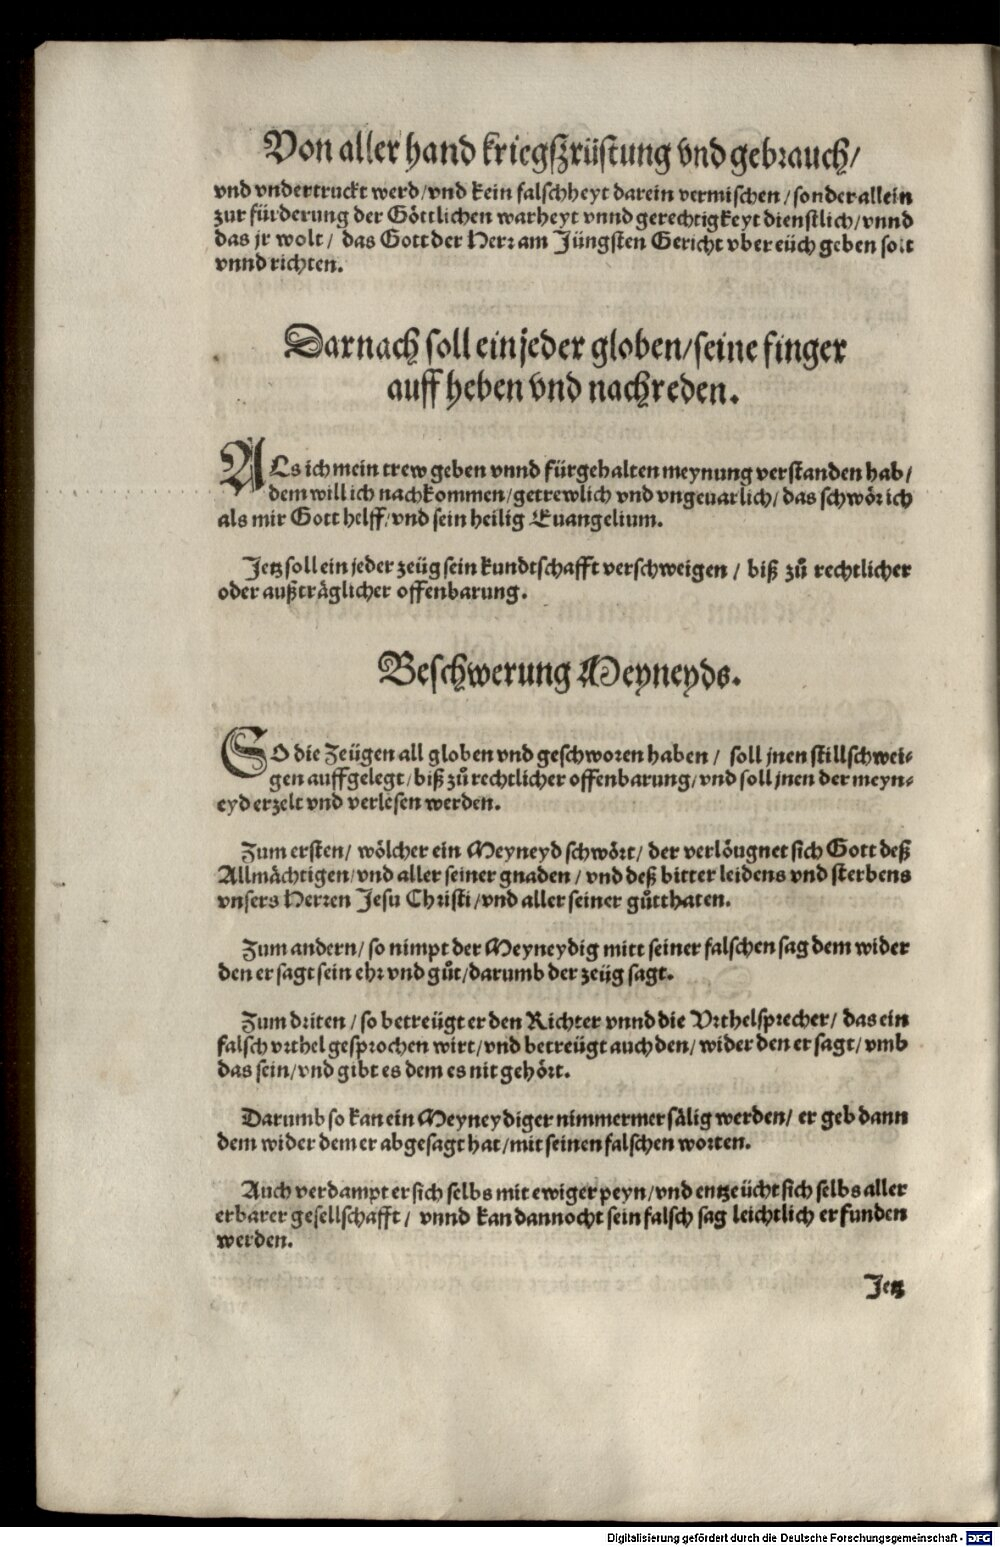 Von aller hand kriegszrüstung vnd gebrauch/
vnd vndertruckt werd/vnd kein falschheyt darein vermischen/sonder allein
zur fürderung der Göttlichen warheyt vnnd gerechtigkeyt dienstlich/vnnd
das jr wolt/ das Gott der Herr am Jüngsten Gericht vber eüch geben solt
vnnd richten.
Darnach soll ein jeder globen/seine finger
auff heben vnd nachreden.
ALs ich mein trew geben vnnd fürgehalten meynung verstanden hab/
dem will ich nachkommen/getrewlich vnd vngeuarlich/das schwör ich
als mir Gott helff/vnd sein heilig Euangelium.
Jetz soll ein jeder zeüg sein kundtschafft verschweigen/ biß zů rechtlicher
oder außträglicher offenbarung.
Beschwerung Meyneyds.
SO die Zeügen all globen vnd geschworen haben/ soll jnen stillschwei-
gen auffgelegt/biß zů rechtlicher offenbarung/vnd soll jnen der meyn-
eyd erzelt vnd verlesen werden.
Zum ersten/ wölcher ein Meyneyd schwört/ der verlöugnet sich Gott deß
Allmächtigen/vnd aller seiner gnaden/ vnd deß bitter leidens vnd sterbens
vnsers Herren Jesu Christi/vnd aller seiner gůtthaten.
Zum andern/ so nimpt der Meyneydig mitt seiner falschen sag dem wider
den er sagt sein ehr vnd gůt/darumb der zeüg sagt.
Zum driten/ so betreügt er den Richter vnnd die Vrthelsprecher/ das ein
falsch vrthel gesprochen wirt/vnd betreügt auch den/wider den er sagt/vmb
das sein/vnd gibt es dem es nit gehört.
Darumb so kan ein Meyneydiger nimmermer sälig werden/ er geb dann
dem wider dem er abgesagt hat/mit seinen falschen worten.
Auch verdampt er sich selbs mit ewiger peyn/vnd entzeücht sich selbs aller
erbarer gesellschafft/ vnnd kan dannocht sein falsch sag leichtlich erfunden
werden.
Jetz
Digitalisierung gefördert durch die Deutsche Forschungsgemeinschaft - DFG